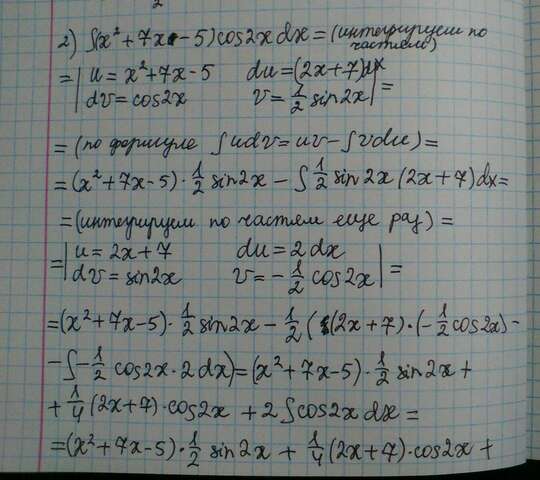 2
2) ∫(x²+7x-5)cos2x dx=(интегрируем по
частям)
=|u=x²+7x-5 du=(2x+7)dx
dv=cos2x v=1/2 sin2x|=
=(по формуле ∫udv=uv-∫vdu)=
=(x²+7x-5)·1/2 sin2x-∫1/2 sin2x(2x+7)dx=
=(интегрируем по частям еще раз)=
=|u=2x+7 du=2dx
dv=sin2x v=-1/2 cos2x|=
=(x²+7x-5)·1/2 sin2x-1/2((2x+7)·(-1/2 cos2x)-
-∫-1/2 cos2x·2dx)=(x²+7x-5)·1/2 sin2x+
+1/4(2x+7)·cos2x+2∫cos2x dx=
=(x²+7x-5)·1/2 sin2x+1/4(2x+7)·cos2x+